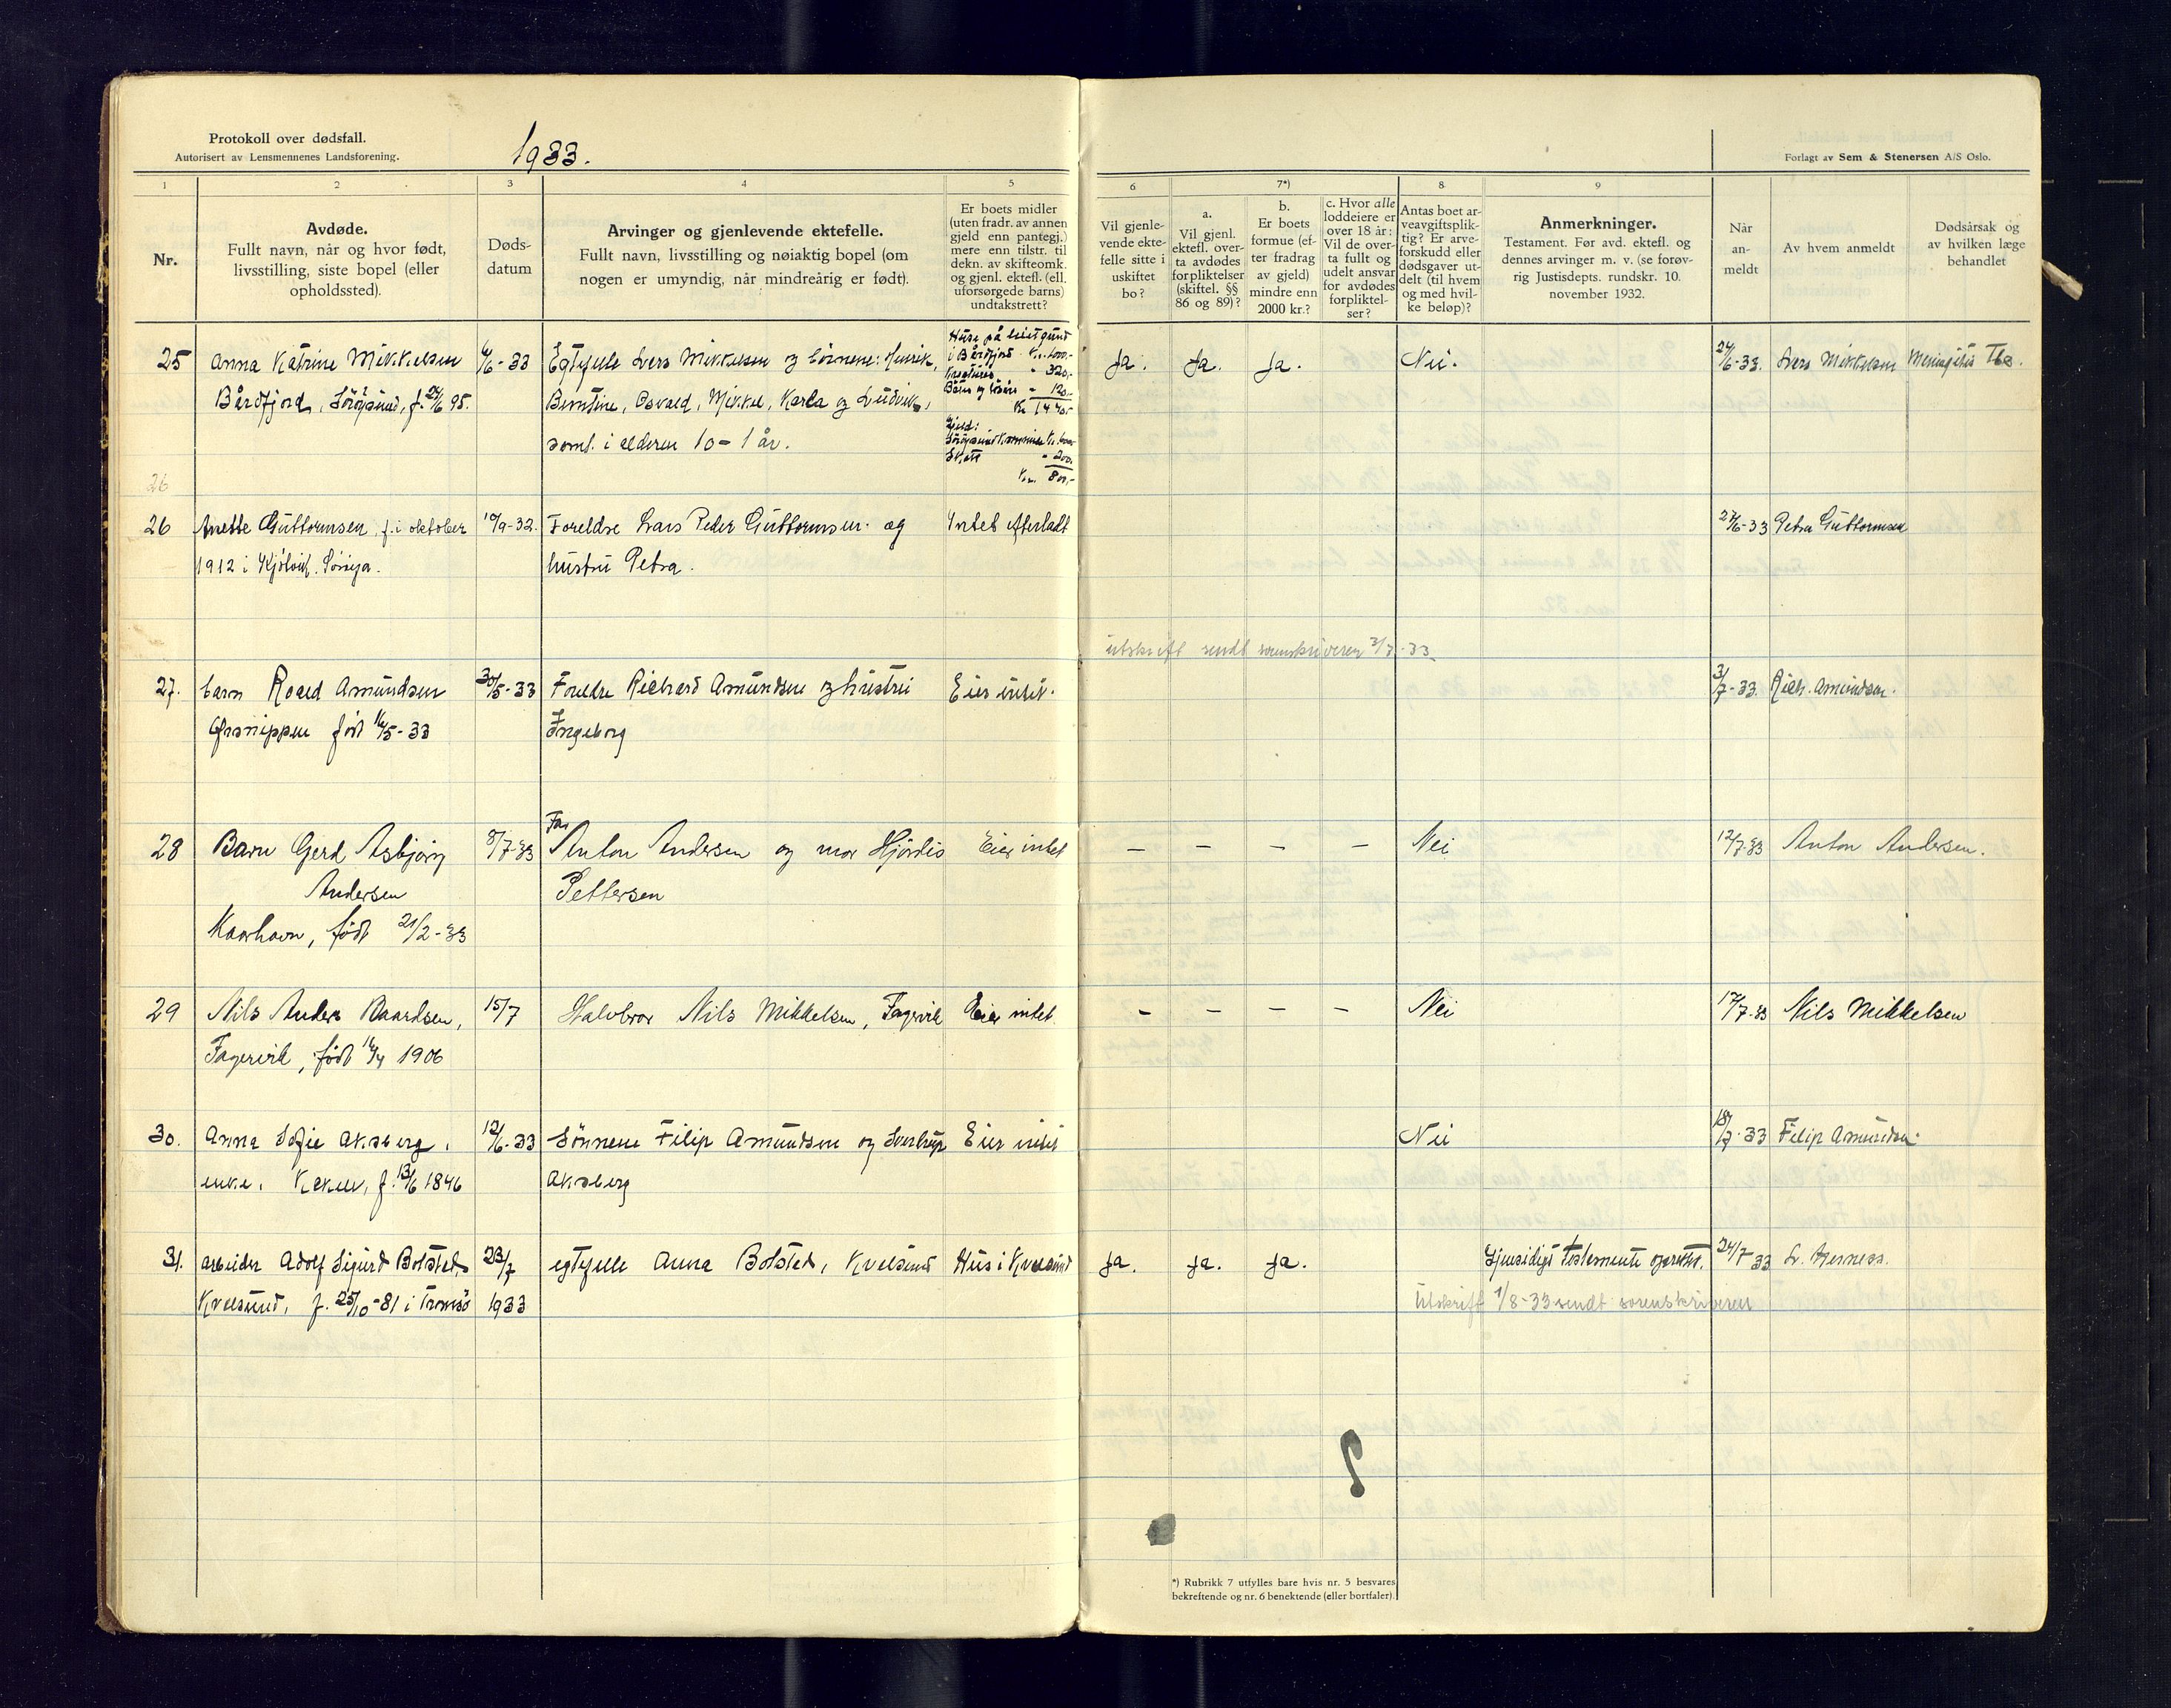 Protokoll over dødsfall.
Autorisert av Lensmennenes Landsforening.
1933.
Forlagt av Sem & Stenersen A/S Oslo.
1 2 3 4 5 6 7*) 8 9
Nr.
Avdøde.
Fullt navn, når og hvor født,
livsstilling, siste bopel (eller
opholdssted).
Døds-
datum
Arvinger og gjenlevende ektefelle.
Fullt navn, livsstilling og nøiaktig bopel (om
nogen er umyndig, når mindreårig er født).
Er boets midler
(uten fradr. av annen
gjeld enn pantegj.)
mere enn tilstr. til
dekn. av skifteomk.
og gjenl. ektef. (ell.
uforsørgede barns)
undtakstrett?
Vil gjenle-
vende ekte-
felle sitte i
uskiftet
bo?
a.
Vil gjenl.
ektefl. over-
ta avdødes
forpliktelser
(skiftel. §§
86 og 89)?
b.
Er boets
formue (ef-
ter fradrag
av gjeld)
mindre enn
2000 kr.?
c. Hvor alle
loddeiere er
over 18 år:
Vil de over-
ta fullt og
udelt ansvar
for avdødes
forpliktel-
ser?
Antas boet ar-
veavgiftsplik-
tig? Er arve-
forskudd eller
dødsgaver ut-
delt (til hvem
og med hvil-
ke beløp)?
Anmerkninger.
Testament. Før avd. ektefl. og
dennes arvinger m. v. (se forøv-
rig Justisdepts. rundskr. 10.
november 1932.
Når
an-
meldt
Av hvem anmeldt
Dødsårsak og
av hvilken læge
behandlet
25 Anna Katrine Mikkelsen 6/6-33 Egtefelle Lars Mikkelsen og børnene: Henrik,
Bårdfjord, Sørøysund, f. 24/6 95. Berntine, Osvald, Mikkel, Karla og Ludvik,
saml. i alderen 10-1 år.
Huse på leiet grund
i Bårdfjord Kr. 1000,-
Kreaturer " 320,-
Båter og løsøre " 120,-
Kr. 1440,-
Gjeld:
Sørøysund kommune Kr. 600,-
Skatt " 200,-
Kr. 800,-
Ja. Ja. Ja. Nei. 24/6-33. Lars Mikkelsen Meningitis Tbc.
26
26 Anette Guttormsen, f. i oktober 10/9-32. Foreldre Lars Peder Guttormsen og Intet efterladt 27/6-33 Petra Guttormsen
1912 i Kjølvik. Sørøya. hustru Petra.
utskrift sendt sorenskriveren 3/7-33
27. barn Roald Amundsen 30/5-33 Foreldre Richard Amundsen og hustru Eier intet. 3/7-33. Rich. Amundsen.
Grønippen født 16/5-33 Ingeborg
28 Barn Gerd Asbjørg 8/7-33 Far Anton Andersen og mor Hjørdis Eier intet - - - - Nei 12/7-33 Anton Andersen.
Andersen Pettersen
Kaarhavn, født 21/2-33
29 Nils Anders Baardsen, 15/7 Halvbror Nils Mikkelsen, Fagervik Eier intet - - - - Nei 17/7-33 Nils Mikkelsen
Fagervik, født 16/4 1906
30. Anna Sofie Aksberg, 12/6-33 Sønnene Filip Amundsen og Sverdrup Eier intet Nei 18/7-33 Filip Amundsen.
enke. Kokelv, f. 13/6 1846 Aksberg
31. arbeider Adolf Sigurd Bolsted, 23/7 egtefelle Anna Bolsted, Kvalsund Hus i Kvalsund Ja. Ja. Ja. Gjensidigt testamente oprettet. 24/7 33
Kvalsund, f. 25/10-81 i Tromsø 1933 Utskrift 1/8-33 sendt sorenskriveren
*) Rubrikk 7 utfylles bare hvis nr. 5 besvares
bekreftende og nr. 6 benektende (eller bortfaler).